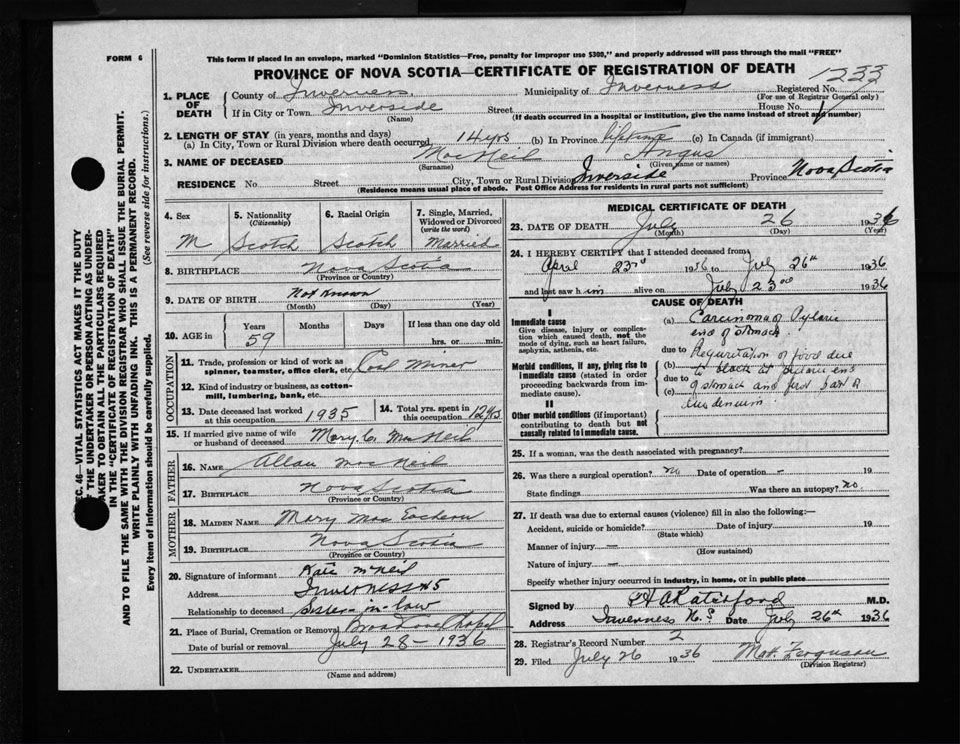 FORM 6
This form if placed in an envelope, marked "Dominion Statistics—Free, penalty for improper use $300," and properly addressed will pass through the mail "FREE"
PROVINCE OF NOVA SCOTIA—CERTIFICATE OF REGISTRATION OF DEATH
1233
1. PLACE OF DEATH { County of Inverness. Municipality of Inverness Registered No.
(For use of Registrar General only)
If in City or Town Inverside Street House No.
(Name) (If death occurred in a hospital or institution, give the name instead of street and number)
2. LENGTH OF STAY (in years, months and days)
(a) In City, Town or Rural Division where death occurred 14 yrs (b) In Province lifetime (c) In Canada (if immigrant)
3. NAME OF DECEASED MacNeil Angus
(Surname) (Given name or names)
RESIDENCE No. Street City, Town or Rural Division Inverside Province Nova Scotia
(Residence means usual place of abode. Post Office Address for residents in rural parts not sufficient)
4. Sex 5. Nationality (Citizenship) 6. Racial Origin 7. Single, Married, Widowed or Divorced (write the word)
M Scotch Scotch Married
8. BIRTHPLACE Nova Scotia
(Province or Country)
9. DATE OF BIRTH Not Known
(Month) (Day) (Year)
10. AGE in Years Months Days If less than one day old
59 hrs. or min.
OCCUPATION
11. Trade, profession or kind of work as spinner, teamster, office clerk, etc. Coal Miner
12. Kind of industry or business, as cotton-mill, lumbering, bank, etc.
13. Date deceased last worked at this occupation 1935 14. Total yrs. spent in this occupation 12 yrs
15. If married give name of wife or husband of deceased Mary C. MacNeil
FATHER
16. NAME Allan MacNeil
17. BIRTHPLACE Nova Scotia
(Province or Country)
MOTHER
18. MAIDEN NAME Mary MacEachern
19. BIRTHPLACE Nova Scotia
(Province or Country)
20. Signature of informant Katie McNeil
Address Inverness NS
Relationship to deceased Sister-in-law
21. Place of Burial, Cremation or Removal Broad Cove Chapel
Date of burial or removal July 28 - 1936
22. UNDERTAKER
(Name and address)
MEDICAL CERTIFICATE OF DEATH
23. DATE OF DEATH July 26 1936
(Month) (Day) (Year)
24. I HEREBY CERTIFY that I attended deceased from
April 23rd 1936 to July 26th 1936
and last saw him alive on July 23rd 1936
CAUSE OF DEATH
I
Immediate cause
Give disease, injury or complication which caused death, not the mode of dying, such as heart failure, asphyxia, asthenia, etc.
(a) Carcinoma of Pyloric
end of stomach
due to
Morbid conditions, if any, giving rise to immediate cause (stated in order proceeding backwards from immediate cause).
(b) Regurgitation of food due
to block at pyloric end
due to
(c) of stomach and first part of
duodenum.
II
Other morbid conditions (if important) contributing to death but not causally related to immediate cause.
25. If a woman, was the death associated with pregnancy?
26. Was there a surgical operation? no Date of operation — 19
State findings Was there an autopsy? no.
27. If death was due to external causes (violence) fill in also the following:—
Accident, suicide or homicide? Date of injury 19
(State which)
Manner of injury —
(How sustained)
Nature of injury —
Specify whether injury occurred in industry, in home, or in public place
Signed by HA Ratchford M.D.
Address Inverness N.S. Date July 26th 1936
28. Registrar's Record Number 2
29. Filed July 26 1936 Mat. Ferguson
(Division Registrar)
SEC. 46—VITAL STATISTICS ACT MAKES IT THE DUTY
OF THE UNDERTAKER OR PERSON ACTING AS UNDER-
TAKER TO OBTAIN ALL THE PARTICULARS REQUIRED
IN THE "CERTIFICATE OF REGISTRATION OF DEATH"
AND TO FILE THE SAME WITH THE DIVISION REGISTRAR WHO SHALL ISSUE THE BURIAL PERMIT.
WRITE PLAINLY WITH UNFADING INK. THIS IS A PERMANENT RECORD.
Every item of information should be carefully supplied. (See reverse side for instructions.)